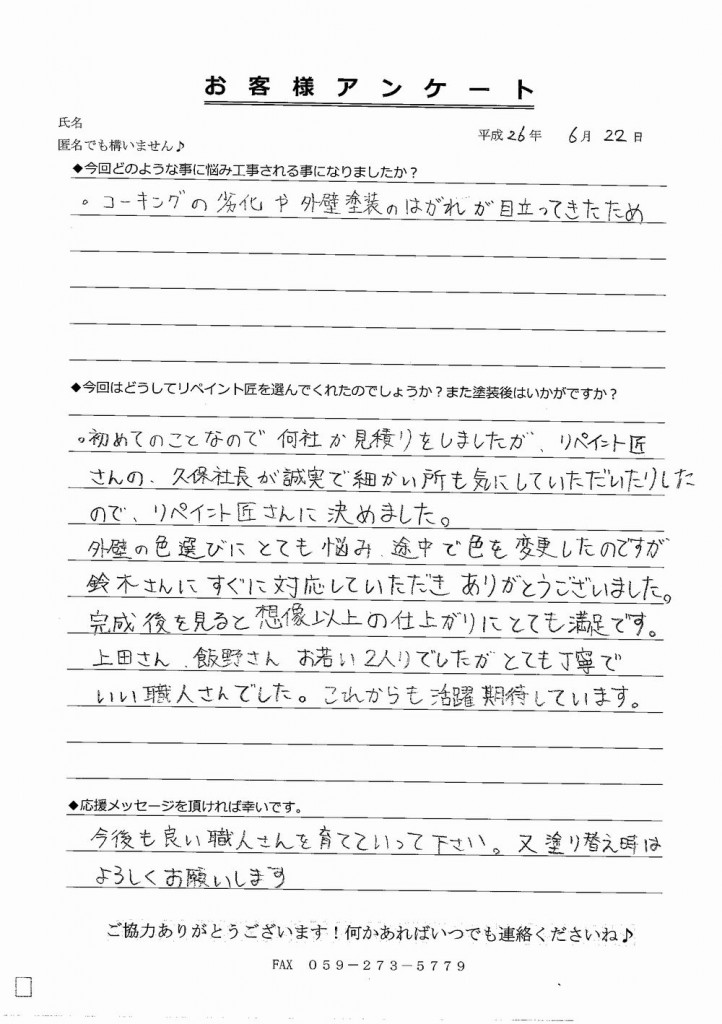 お客様アンケート
氏名
匿名でも構いません♪
平成26年 6月 22日
◆今回どのような事に悩み工事される事になりましたか？
。コーキングの劣化や外壁塗装のはがれが目立ってきたため
◆今回はどうしてリペイント匠を選んでくれたのでしょうか？また塗装後はいかがですか？
。初めてのことなので何社か見積りをしましたが、リペイント匠
さんの、久保社長が誠実で細かい所も気にしていただいたりした
ので、リペイント匠さんに決めました。
外壁の色選びにとても悩み、途中で色を変更したのですが
鈴木さんにすぐに対応していただきありがとうございました。
完成後を見ると想像以上の仕上がりにとても満足です。
上田さん、飯野さん お若い2人りでしたがとても丁寧で
いい職人さんでした。これからも活躍期待しています。
◆応援メッセージを頂ければ幸いです。
今後も良い職人さんを育てていって下さい。又塗り替え時は
よろしくお願いします
ご協力ありがとうございます！何かあればいつでも連絡くださいね♪
FAX 059－273－5779